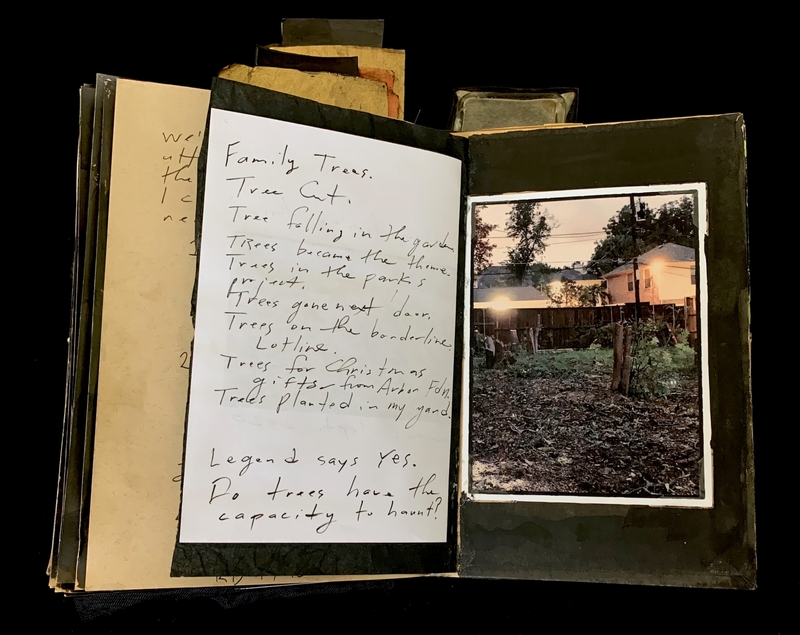 we'
utt
the
I c
ne
1
2
Family Trees.
Tree Cut.
Tree falling in the garden
Trees became the theme.
Trees in the parks
project.
Trees gone next door.
Trees on the borderline.
Lotline.
Trees for Christmas
gifts from Arbor Fdn.
Trees planted in my yard.
Legend says Yes.
Do trees have the
capacity to haunt?